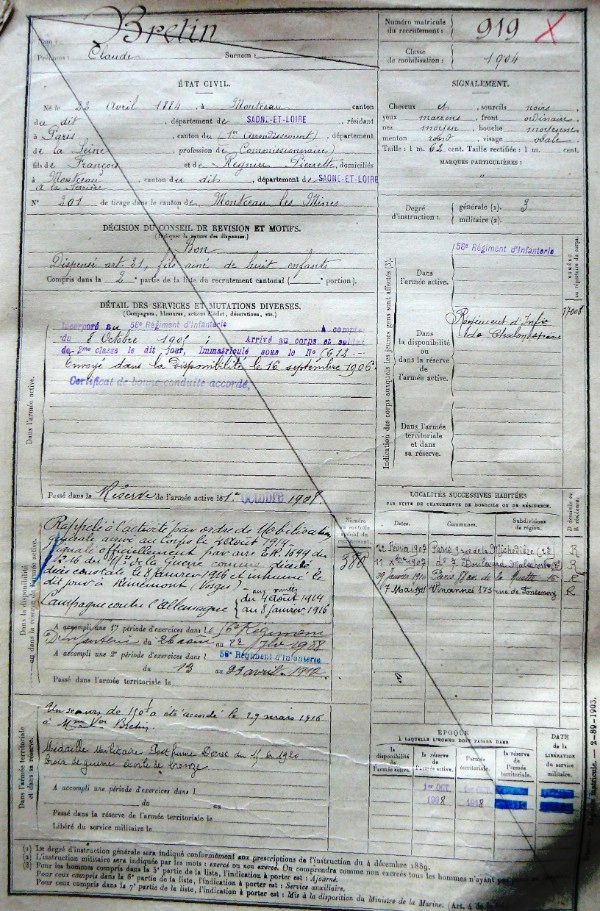 Nom : Bretin
Prénoms : Claude Surnom :
Numéro matricule du recrutement : 919 X
Classe de mobilisation : 1904
ÉTAT CIVIL.
Né le 22 avril 1884, à Montceau, canton
du dit, département de SAONE-ET-LOIRE, résidant
à Paris, canton du (1er Arrondissement), département
de la Seine, profession de Commissionnaire
fils de François et de Regnier Pierrette, domiciliés
à Montceau, canton du dit, département de SAONE-ET-LOIRE
N° 201 de tirage dans le canton de Montceau les Mines
SIGNALEMENT.
Cheveux et sourcils noirs
yeux marrons, front ordinaire
nez moyen, bouche moyenne
menton rond, visage ovale
Taille : 1 m. 62 cent. Taille rectifiée : 1 m. cent.
MARQUES PARTICULIÈRES :
Degré d'instruction : générale (1). 3
militaire (2).
DÉCISION DU CONSEIL DE REVISION ET MOTIFS.
(Indiquer la nature des dispenses.)
Bon
Dispensé art 21, fils ainé de huit enfants
Compris dans la 2e partie de la liste du recrutement cantonal ( portion).
DÉTAIL DES SERVICES ET MUTATIONS DIVERSES.
(Campagnes, blessures, actions d'éclat, décorations, etc.)
Dans l'armée active.
Incorporé au 56e Régiment d'Infanterie à compter
du 8 Octobre 1905 ; Arrivé au corps et soldat
de 2ème classe le dit jour, Immatriculé sous le N° 5612.-
Envoyé dans la Disponibilité le 16 septembre 1906.
Certificat de bonne conduite accordé,
Passé dans la Réserve de l'armée active le 1er OCTOBRE 1908
Indication des corps auxquels les jeunes gens sont affectés (3) :
Dans l'armée active.
56e Régiment d'Infanterie
Dans la disponibilité ou dans la réserve de l'armée active.
Régiment d'Infie
Dans l'armée territoriale et dans sa réserve.
Dans la disponibilité ou dans la réserve de l'armée active.
Rappelé à l'activité par ordre de Mobilisation
générale arrivé au corps le 4 août 1914
décès constaté le 8 janvier 1916 et inhumé le
dit jour à (Vosges)
Campagne contre l'Allemagne du 4 août 1914
au 8 janvier 1916
A accompli une 1re période d'exercices dans le 56e Régiment
D'Infanterie du 26 août au 22 7bre 1908
A accompli une 2e période d'exercices dans l 56e Régiment d'Infanterie
du 13 au 29 avril 1912
Passé dans l'armée territoriale le
380
LOCALITÉS SUCCESSIVES HABITÉES
PAR SUITE DE CHANGEMENTS DE DOMICILE OU DE RÉSIDENCE.
Dates. Communes. Subdivisions de région. D. domicile ou R. résidence.
1907 Paris R
R
1910 Paris R
7 Mai 1911 Vincennes 175 rue de Fontenay R
Dans l'armée territoriale et dans sa réserve.
Un secours de 150f a été accordé le 29 mars 1916
à Mme Vve Bretin
Médaille Militaire Posthume
Croix de guerre étoile de bronze
A accompli une période d'exercices dans l
du au
Passé dans la réserve de l'armée territoriale le
Libéré du service militaire le
ÉPOQUE
À LAQUELLE L'HOMME DOIT PASSER DANS
la disponibilité de l'armée active. la réserve de l'armée active. l'armée territoriale. la réserve de l'armée territoriale.
DATE de la LIBÉRATION du service militaire.
1er OCT. 1er OCT.
1908 1918
(1) Le degré d'instruction générale sera indiqué conformément aux prescriptions de l'instruction du 4 décembre 1889.
(2) L'instruction militaire sera indiquée par les mots : exercé ou non exercé. On comprendra comme non exercés tous les hommes n'ayant
(3) Pour les hommes compris dans la 5e partie de la liste, l'indication à porter est : Ajourné.
Pour ceux compris dans la 6e partie de la liste, l'indication à porter est : Service auxiliaire.
Pour ceux compris dans la 7e partie de la liste, l'indication à porter est : Mis à la disposition du Ministre de la Marine.